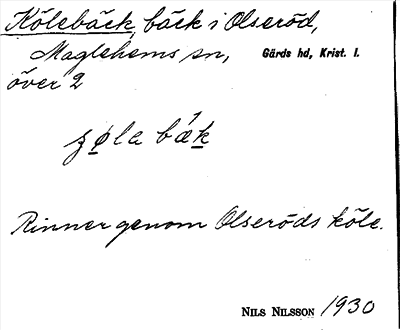 Kölebäck, bäck i Olseröd,
Maglehems sn, Gärds hd, Krist. l.
över 2
bæ̀k
Rinner genom Olseröds köle.
NILS NILSSON 1930